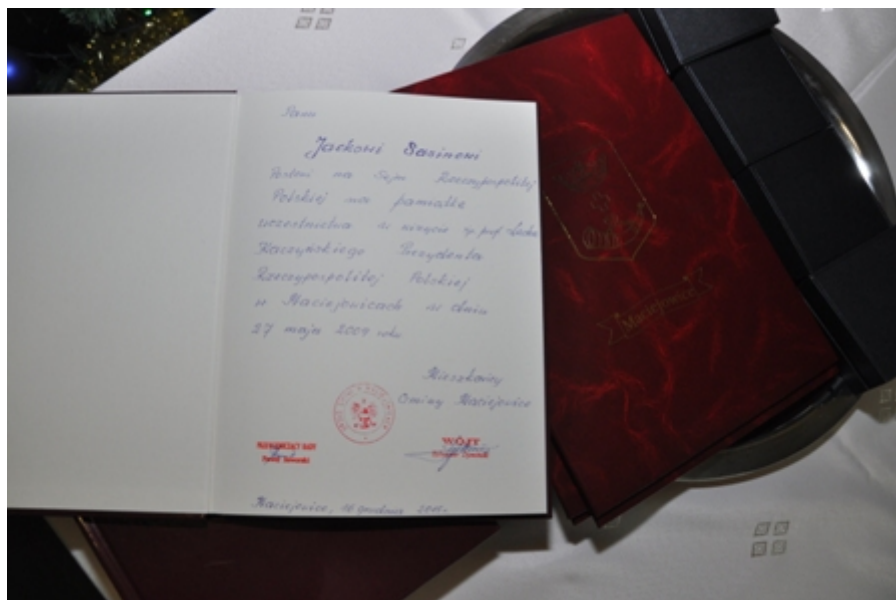 Panu
Jackowi Sasinowi
Posłowi na Sejm Rzeczypospolitej
Polskiej na pamiątkę
uczestnictwa w wizycie śp. prof. Lecha
Kaczyńskiego Prezydenta
Rzeczypospolitej Polskiej
w Maciejowicach w dniu
27 maja 2009 roku
Mieszkańcy
Gminy Maciejowice
PRZEWODNICZĄCY RADY
WÓJT
Maciejowice, 16 grudnia
Maciejowice